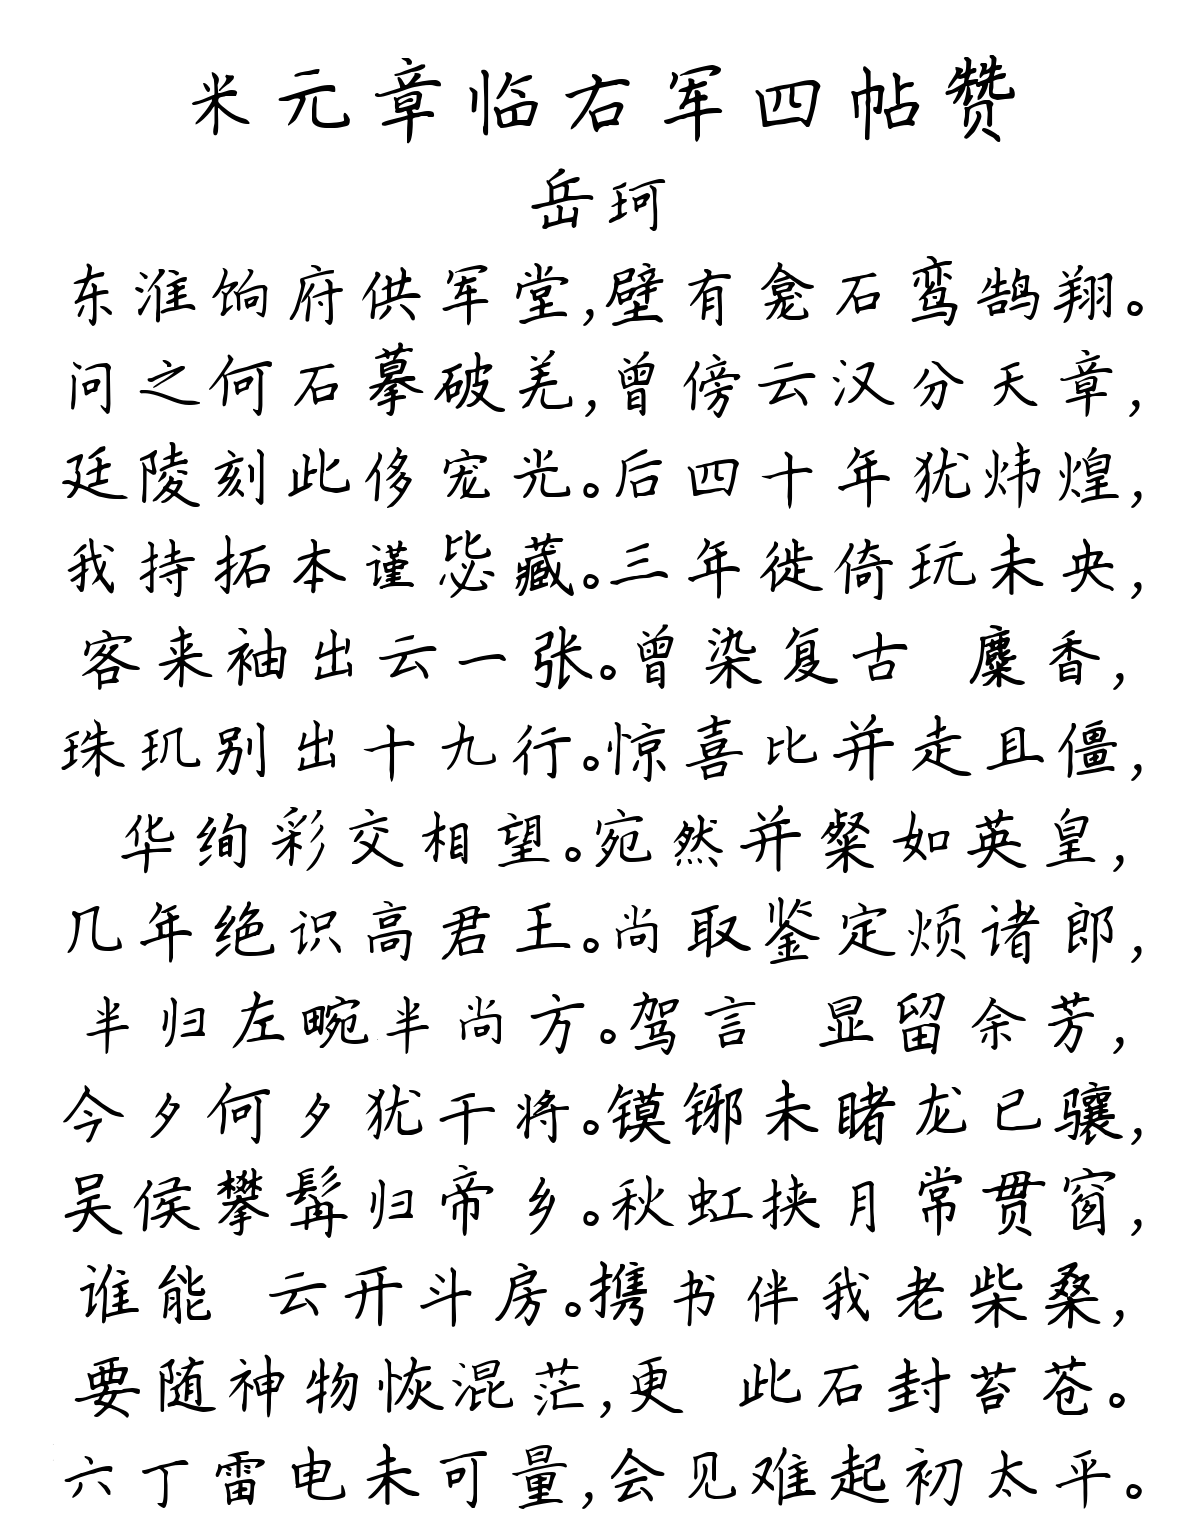 米元章临右军四帖赞
岳珂
东淮饷府供军堂,壁有龛石鸾鹄翔。
问之何石摹破羌,曾傍云汉分天章,
廷陵刻此侈宠光。后四十年犹炜煌,
我持拓本谨毖藏。三年徙倚玩未央,
客来袖出云一张。曾染复古 麋香,
珠玑别出十九行。惊喜比并走且僵,
华绚彩交相望。宛然并粲如英皇,
几年绝识高君王。尚取鉴定烦诸郎,
半归左畹半尚方。驾言 显留余芳,
今夕何夕犹干将。镆铘未睹龙已骧,
吴侯攀髯归帝乡。秋虹挟月常贯窗,
谁能 云开斗房。携书伴我老柴桑,
要随神物恢混茫,更 此石封苔苍。
六丁雷电未可量,会见难起初太平。